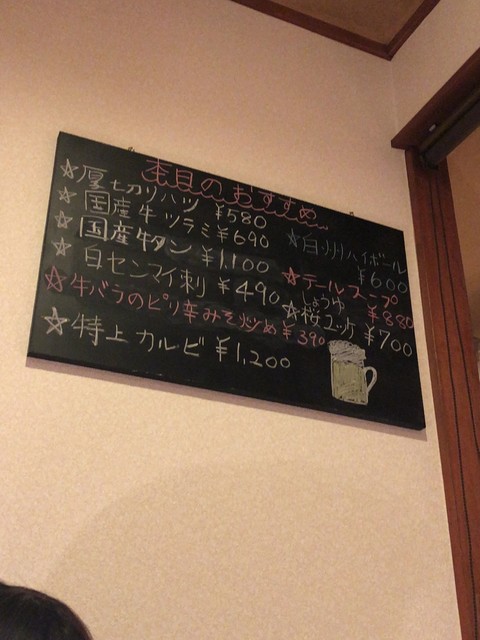 本日のおすすめ
☆厚切りハツ ¥580
☆国産牛ツラミ ¥690
☆国産牛タン ¥1,100
☆白センマイ刺 ¥490
☆牛バラのピリ辛みそ炒め ¥390
☆特上カルビ ¥1,200
☆白州ハイボール
¥600
☆テールスープ
しょうゆ ¥880
☆桜ユッケ ¥700